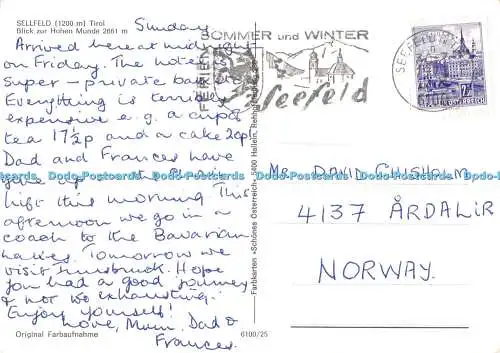 SELLFELD (1200 m) Tirol
Blick zur Hohen Munde 2661 m
Sunday
Arrived here at midnight
on Friday. The hotel is
super - private bath etc
Everything is terribly
expensive e.g. a cup of
tea 17½p and a cake 20p!
Dad and Frances have
gone up the
lift this morning This
afternoon we go in a
coach to the Bavarian
Tomorrow we
visit Innsbruck. Hope
you had a good journey
& not too exhausting.
Enjoy yourself!
Love, Mum, Dad &
Frances.
Original Farbaufnahme
6100/25
Farbkarten «Schönes Österreich» 5400 Hallein,
FERIEN
SOMMER und WINTER
Seefeld
SEEFELD
ÖSTERREICH
Mr DAVID CHISHOLM
4137 ÅRDALIR
NORWAY.
Dodo-Postcards Dodo-Postcards Dodo-Postcards Dodo-Postcards